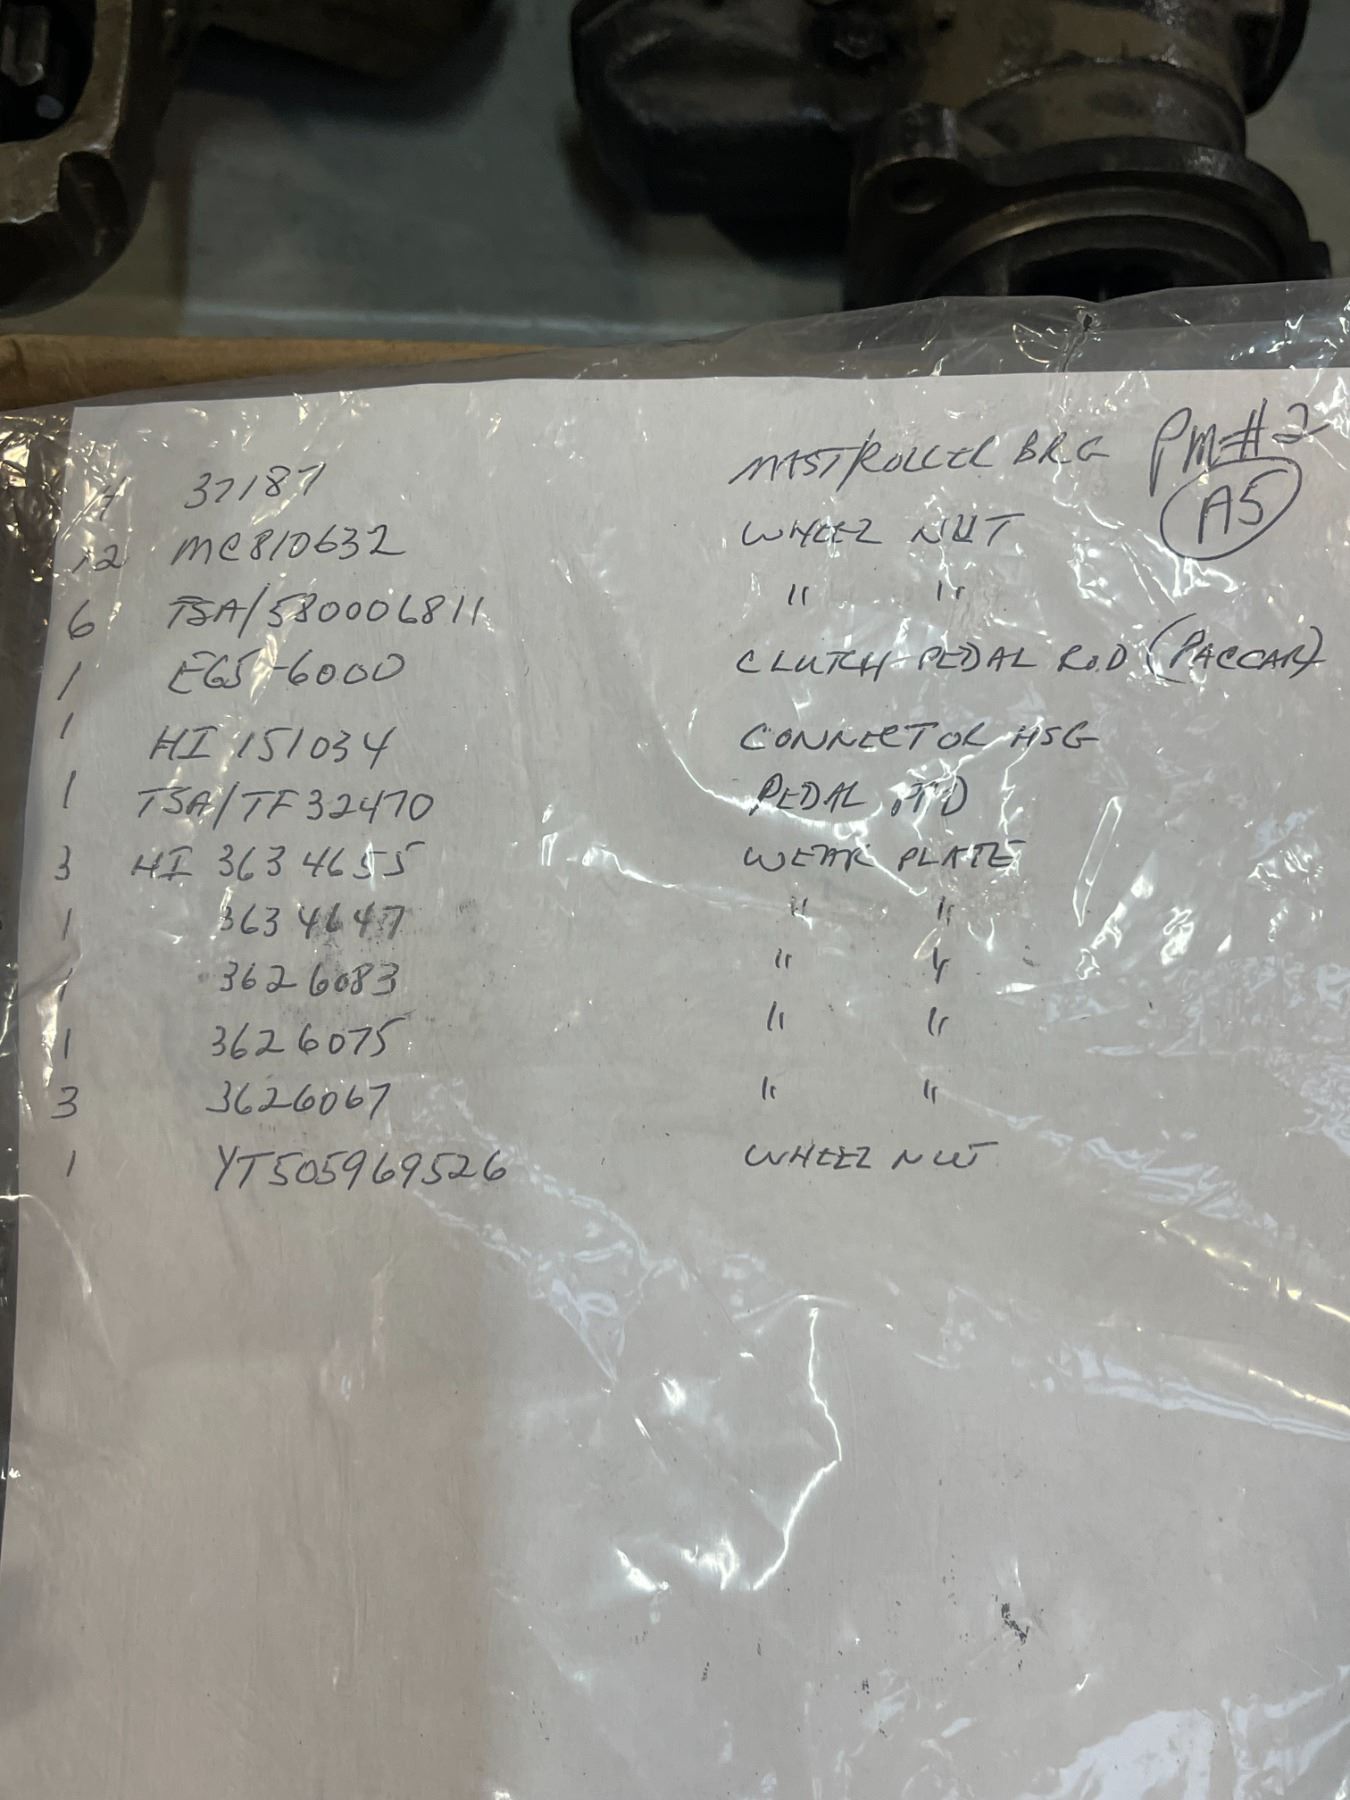 PM#2
4 37187 MAST/ROLLER BRG
A5
12 MC810632 WHEEL NUT
6 TSA/580006811 " "
1 E65-6000 CLUTCH PEDAL ROD (PACCAR)
1 HI 151034 CONNECTOR HSG
1 TSA/TF32470 PEDAL
3 HI 3634655 WEAR PLATE
1 3634647 " "
1 3626083 " "
1 3626075 " "
3 3626067 " "
1 YT505969526 WHEEL NUT